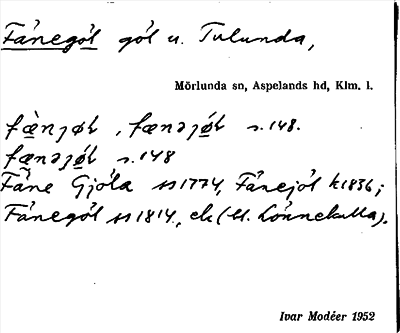 Fånegöl göl u. Tulunda,
Mörlunda sn, Aspelands hd, Klm. l.
s. 148.
s. 148
Fåne Gjöla ss 1774, Fånejöl k 1836;
Fånegöl ss 1814, ek (st. Lönnekulla).
Ivar Modéer 1952